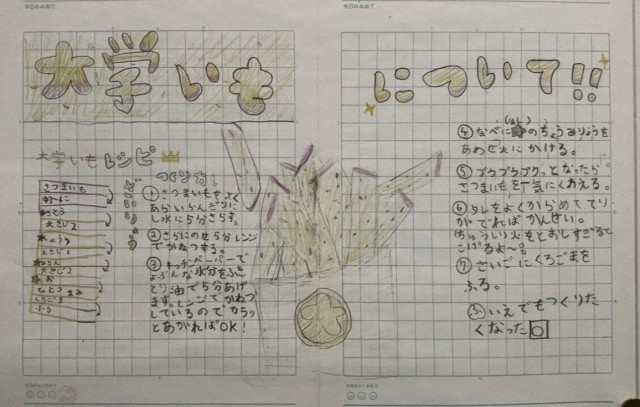 今日のめあて
今日のめあて
大学いも
について!!
大学いもレシピ
ざいりょう
さつまいも
大さじ2
大さじ1
大さじ2
ひとつまみ
つくり方!
①さつまいもをよく
あらいらんぎりに
し水に5分さらす。
②さらにのせ5分レンジ
でかねつする。
③キッチンペーパーで
よぶんな水分をふき
とり油で5分あげ
ます。レンジでかねつ
しているのでカラッ
とあがればOK!
大
④なべに☆のちょうみりょうを
あわせ火にかける。
⑤プクプクプクッとなったら
さつまいもを一気にくわえる。
⑥タレをよくからめててり
がでればかんせい。
ちゅうい火をとおしすぎると
こげるよ〜。
⑦さいごにくろごまを
ふる。
いえでもつくりた
くなった